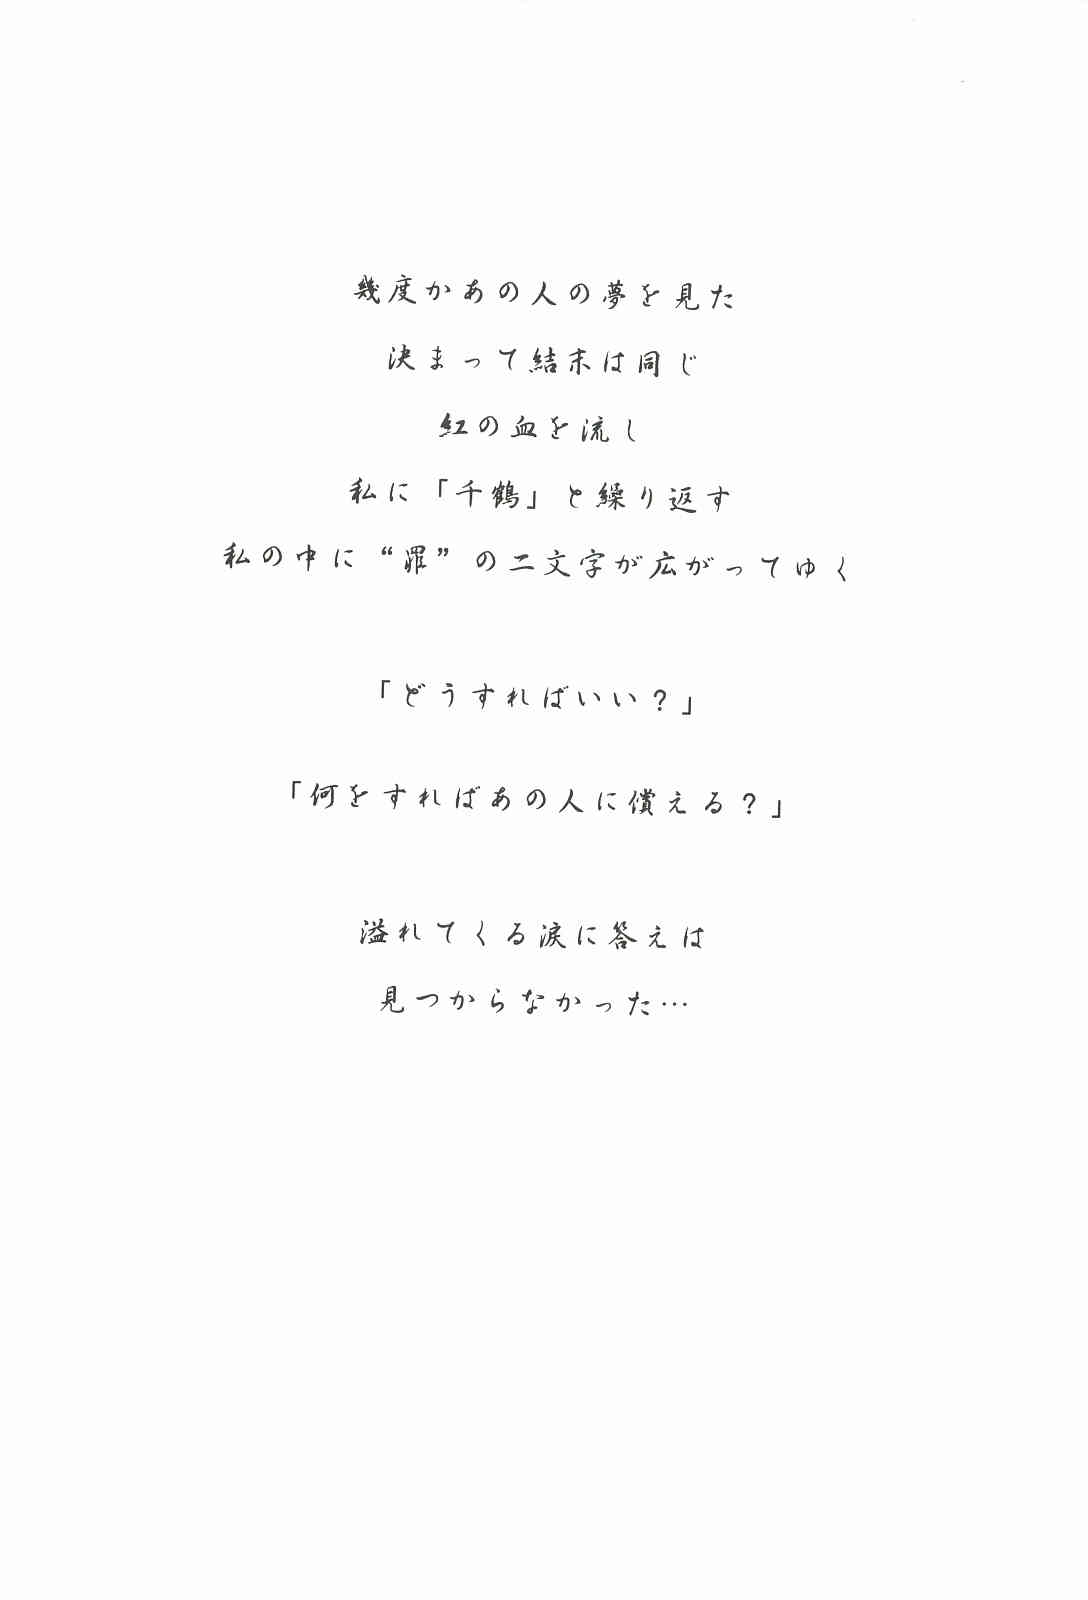 幾度かあの人の夢を見た
決まって結末は同じ
紅の血を流し
私に「千鶴」と繰り返す
私の中に“罪”の二文字が広がってゆく
「どうすればいい？」
「何をすればあの人に償える？」
溢れてくる涙に答えは
見つからなかった…